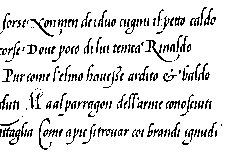 forse · Non men de i duo cugini il petto caldo
corse · Doue poco di lui temea Rinaldo
Pur come l'elmo hauesse ardito & baldo
duti M al paragon dell'arme conosciuti
attaglia Come a piè si trouar coi brandi ignudi